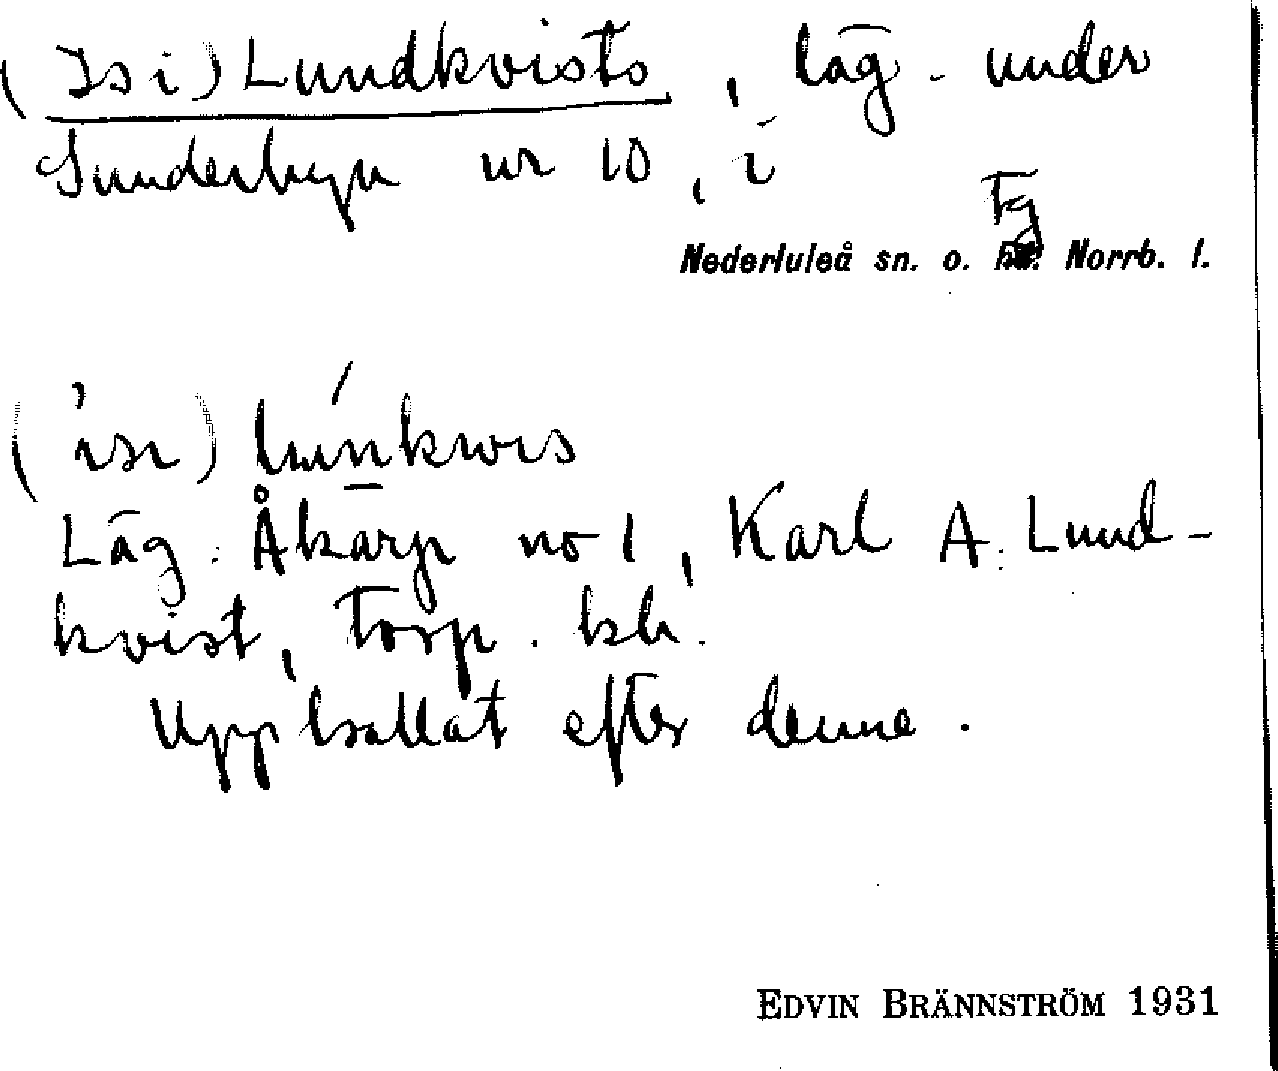 (Isi) Lundkvists, läg. under
Sunderbyn nr 10, i
Tg
Nederluleå sn. o. Norrb. l.
(isi) lunkwis
Läg. Åkärp no 1, Karl A. Lund-
kvist, torp. kh.
Uppkallat efter denne.
EDVIN BRÄNNSTRÖM 1931